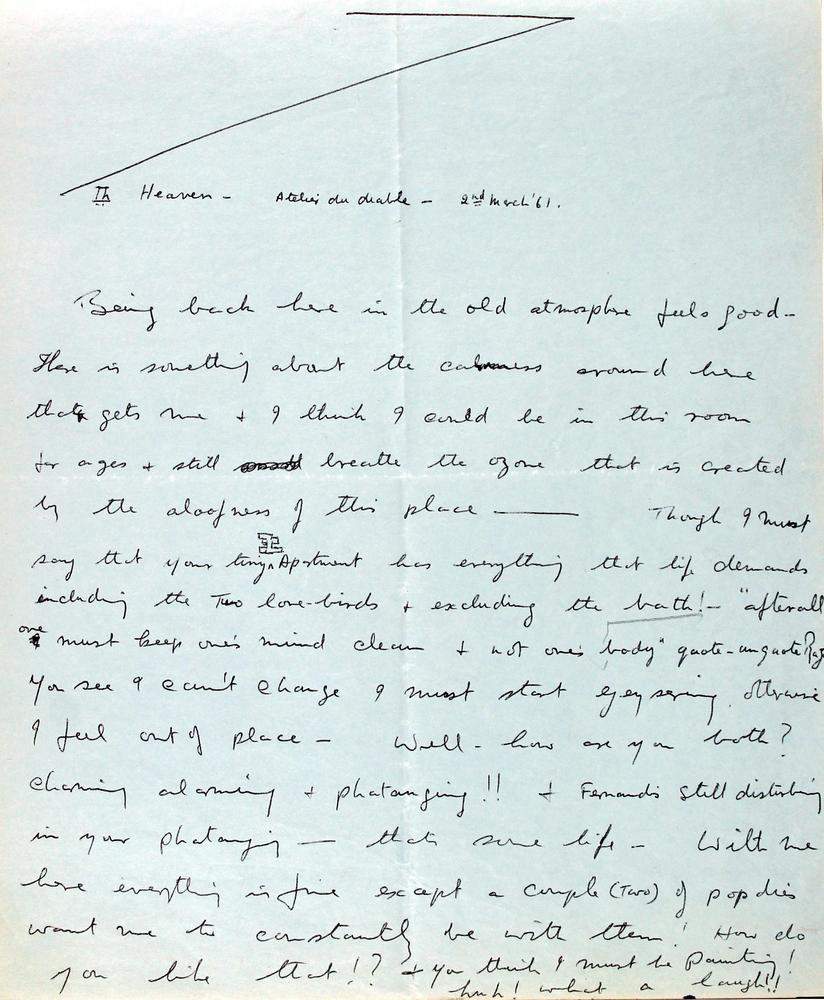 7th Heaven - Atelier du diable - 2nd March '61.
Being back here in the old atmosphere feels good -
there is something about the calmness around here
that gets me & I think I could be in this room
for ages & still breathe the ozone that is created
by the aloofness of this place —— Though I must
say that your tiny Apartment has everything that life demands
including the Two love-birds & excluding the bath! - "afterall
one must keep one's mind clean & not one's body" quote-unquote
You see I can't change I must start otherwise
I feel out of place - Well - how are you both?
Charming alarming & phatanging!! & Fernando's still disturbing
in your phatanging — thats some life - With me
here everything is fine except a couple (Two) of popdies
want me to constantly be with them! How do
you like that!? & you think I must be Painting!
huh! what a laugh!!